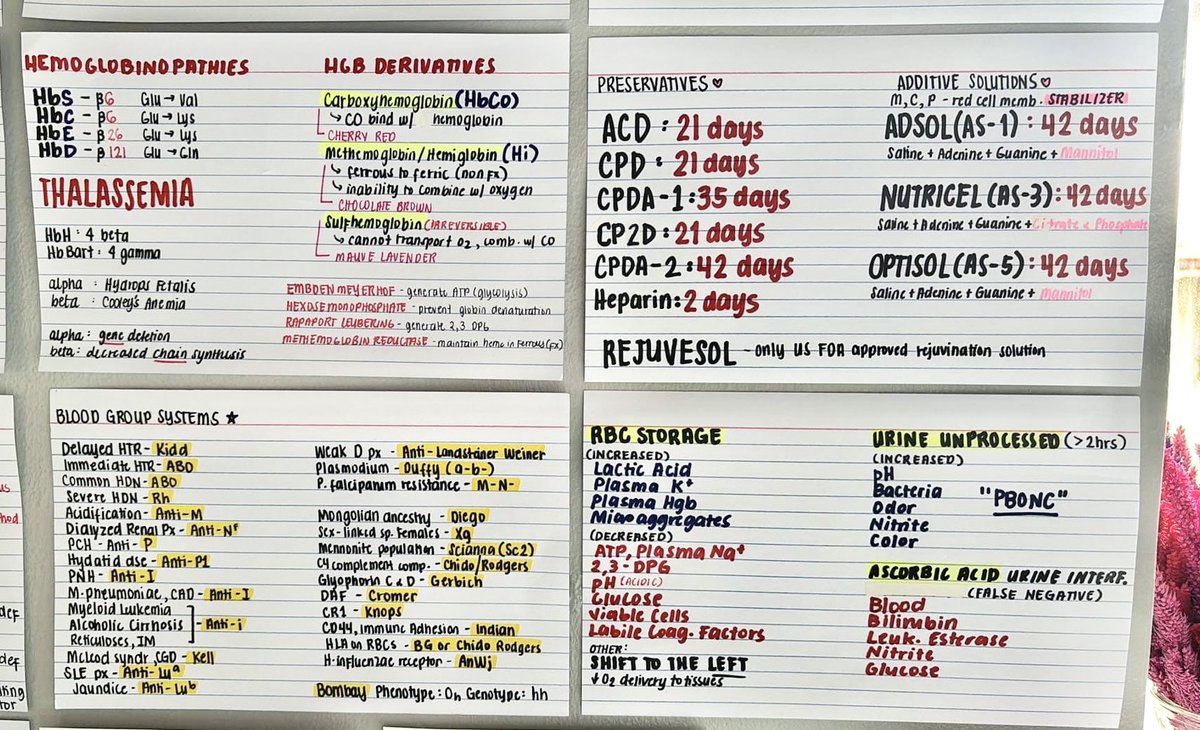 HEMOGLOBINOPATHIES
HbS - β6 Glu → Val
HbC - β6 Glu → Lys
HbE - β26 Glu → Lys
HbD - β121 Glu → Gln
THALASSEMIA
HbH : 4 beta
Hb Bart : 4 gamma
alpha : Hydrops Fetalis
beta : Cooley's Anemia
alpha : gene deletion
beta: decreased chain synthesis
HGB DERIVATIVES
Carboxyhemoglobin (HbCO)
↳ CO bind w/ hemoglobin
CHERRY RED
Methemoglobin/Hemiglobin (Hi)
↳ ferrous to ferric (non fx)
↳ inability to combine w/ oxygen
CHOCOLATE BROWN
Sulfhemoglobin (IRREVERSIBLE)
↳ cannot transport O2, comb. w/ CO
MAUVE LAVENDER
EMBDEN MEYERHOF - generate ATP (glycolysis)
HEXOSE MONOPHOSPHATE - prevent globin denaturation
RAPAPORT LEUBERING - generate 2,3 DPG
METHEMOGLOBIN REDUCTASE - maintain heme in Ferrous (fx)
PRESERVATIVES ♥
ACD : 21 days
CPD : 21 days
CPDA-1 : 35 days
CP2D : 21 days
CPDA-2 : 42 days
Heparin : 2 days
ADDITIVE SOLUTIONS ♥
M, C, P - red cell memb. STABILIZER
ADSOL (AS-1) : 42 days
Saline + Adenine + Guanine + Mannitol
NUTRICEL (AS-3) : 42 days
Saline + Adenine + Guanine + Citrate & Phosphate
OPTISOL (AS-5) : 42 days
Saline + Adenine + Guanine + mannitol
REJUVESOL - only US FDA approved rejuvination solution
BLOOD GROUP SYSTEMS ★
Delayed HTR - Kidd
Immediate HTR - ABO
Common HDN - ABO
Severe HDN - Rh
Acidification - Anti-M
Dialyzed Renal Px - Anti-Nf
PCH - Anti-P
Hydatid dse - Anti-P1
PNH - Anti-I
M. pneumoniae, CAD - Anti-I
Myeloid Leukemia
Alcoholic Cirrhosis - Anti-i
Reticuloses, IM
McLeod syndr, CGD - Kell
SLE px - Anti-Luᵃ
Jaundice - Anti-Luᵇ
Weak D px - Anti-Landstainer Weiner
Plasmodium - Duffy (a-b-)
P. falciparum resistance - M-N-
Mongolian ancestry - Diego
Sex-linked sp. Females - Xg
Mennonite population - Scianna (Sc2)
C4 complement comp. - Chido/Rodgers
Glyophorin C & D - Gerbich
DAF - Cromer
CR1 - Knops
CD44, Immune Adhesion - Indian
HLA on RBCs - BG or Chido Rodgers
H. influenzae receptor - AnWj
Bombay Phenotype : Oh Genotype : hh
RBC STORAGE
(INCREASED)
Lactic Acid
Plasma K+
Plasma Hgb
Microaggregates
(DECREASED)
ATP, Plasma Na+
2,3-DPG
pH (ACIDIC)
Glucose
Viable Cells
Labile Coag. Factors
OTHER:
SHIFT TO THE LEFT
↓ O2 delivery to tissues
URINE UNPROCESSED (>2hrs)
(INCREASED)
pH
Bacteria
Odor
Nitrite
Color
"PBONC"
ASCORBIC ACID URINE INTERF.
(FALSE NEGATIVE)
Blood
Bilirubin
Leuk. Esterase
Nitrite
Glucose
def
def